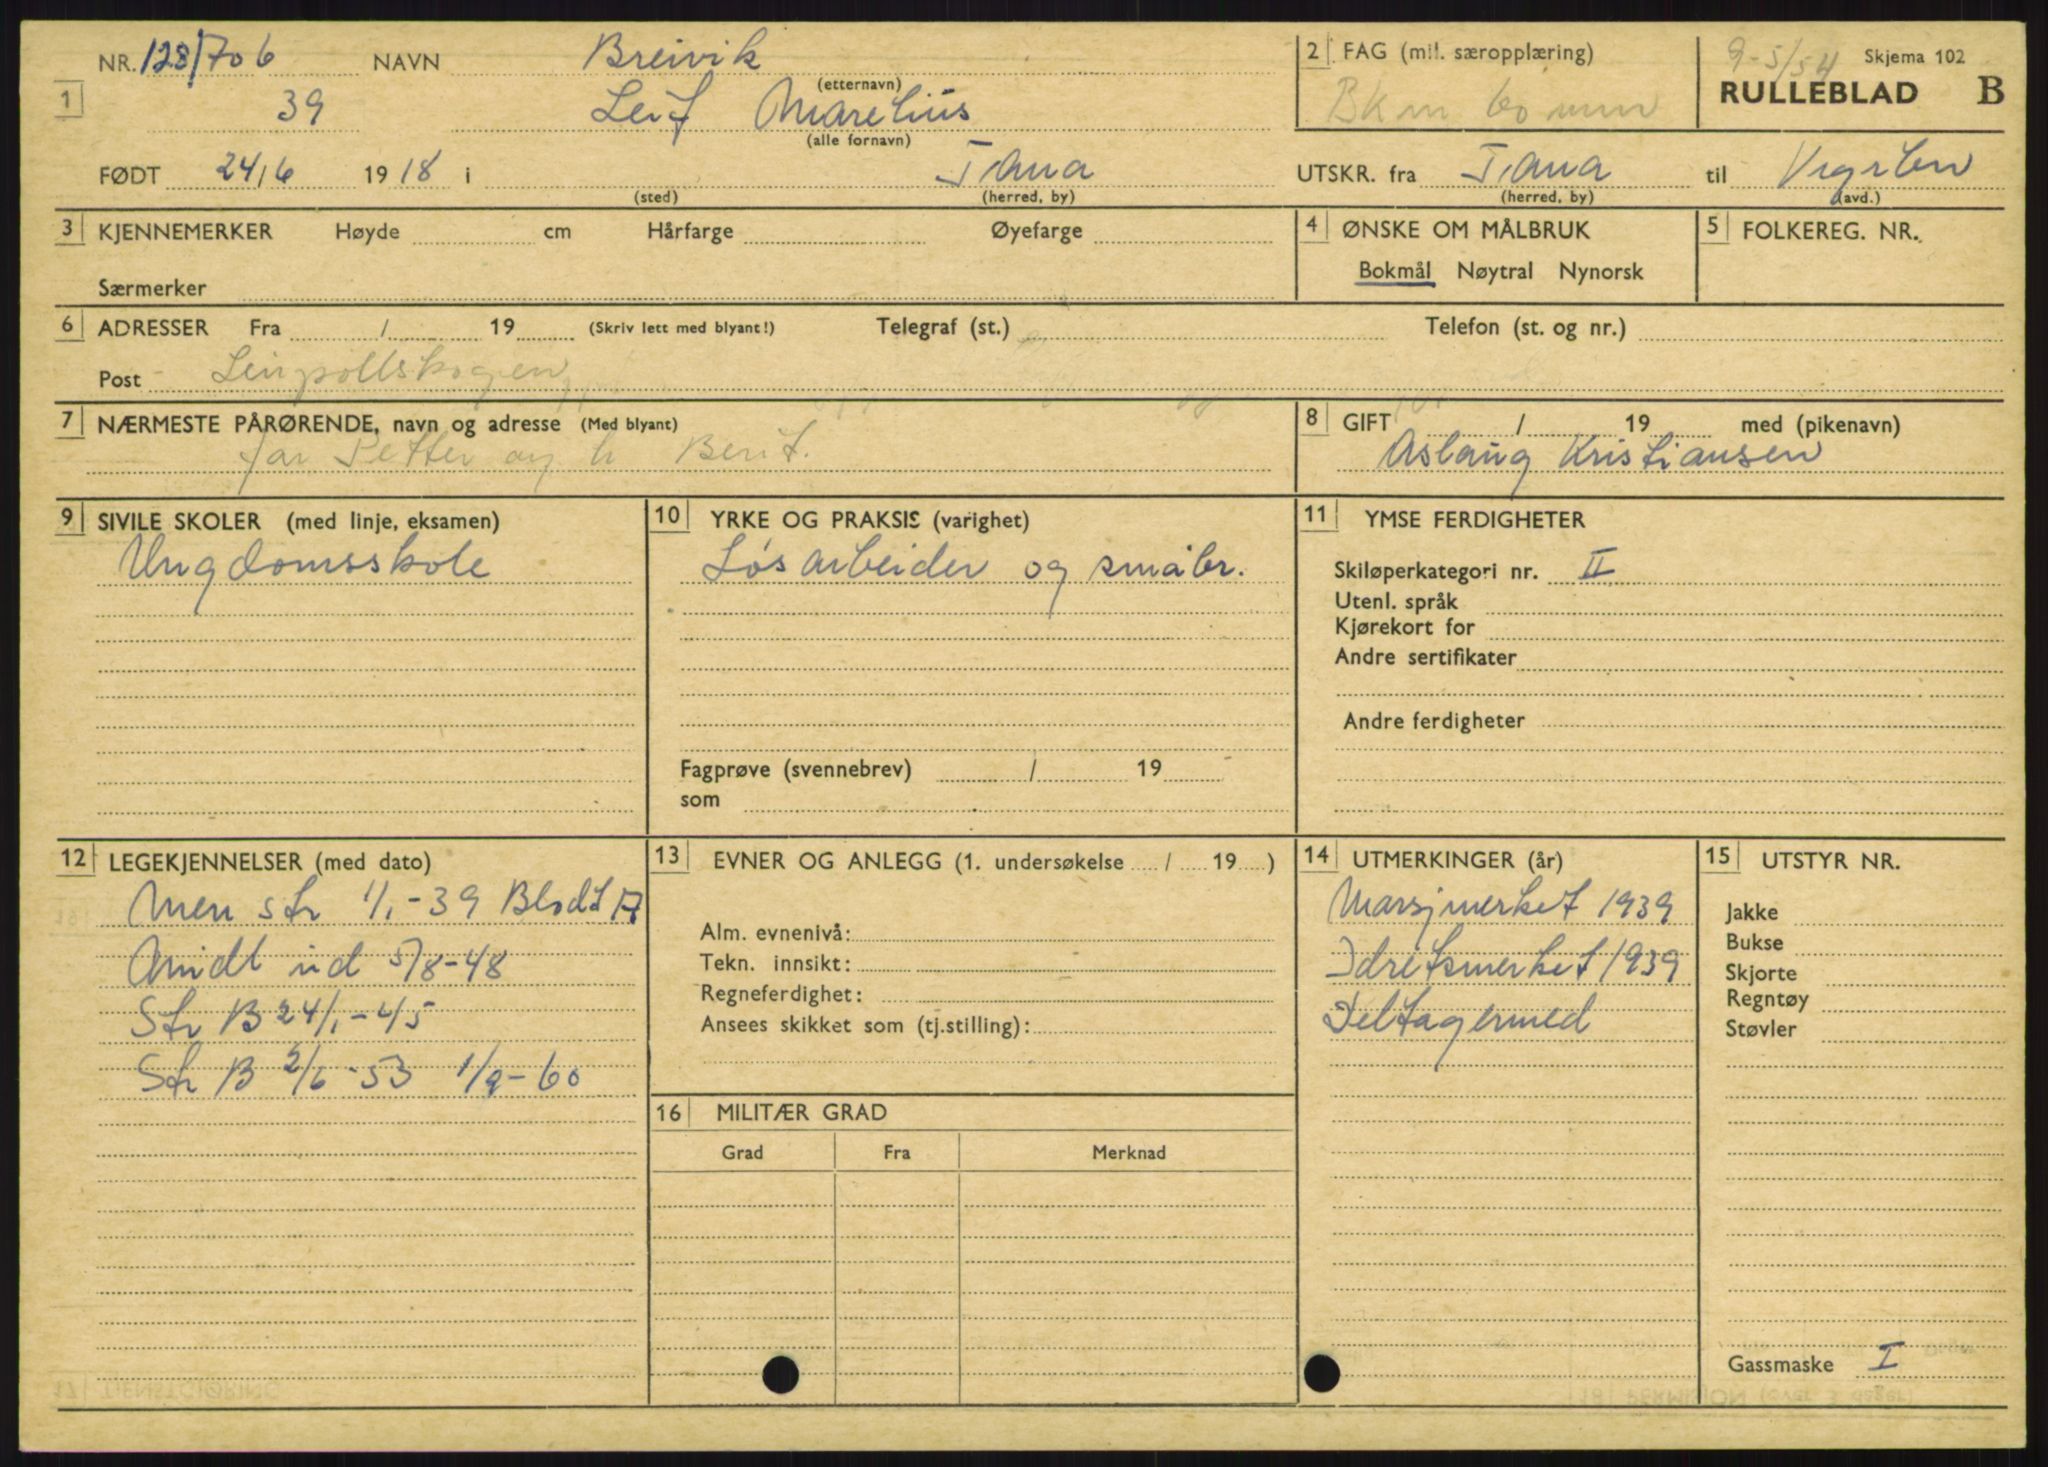 NR. 128/706 NAVN Breivik
(etternavn)
1 39 Leif Marelius
(alle fornavn)
FØDT 24/6 1918 i Tana
(sted) (herred, by)
2 FAG (mil. særopplæring)
Bk m 60 mm
9-5/54 Skjema 102
RULLEBLAD B
UTSKR. fra Tana til
(herred, by) (avd.)
3 KJENNEMERKER Høyde cm Hårfarge Øyefarge
Særmerker
4 ØNSKE OM MÅLBRUK
Bokmål Nøytral Nynorsk
5 FOLKEREG. NR.
6 ADRESSER Fra / 19 (Skriv lett med blyant!) Telegraf (st.) Telefon (st. og nr.)
Post Leirpollskogen
7 NÆRMESTE PÅRØRENDE, navn og adresse (Med blyant)
far Petter og h Berit.
8 GIFT / 19 med (pikenavn)
Aslaug Kristiansen
9 SIVILE SKOLER (med linje, eksamen)
Ungdomsskole
10 YRKE OG PRAKSIS (varighet)
Løsarbeider og småbr.
Fagprøve (svennebrev) / 19
som
11 YMSE FERDIGHETER
Skiløperkategori nr. II
Utenl. språk
Kjørekort for
Andre sertifikater
Andre ferdigheter
12 LEGEKJENNELSER (med dato)
Men str 1/1-39 Blodt A
ud 5/8-48
Str B 24/1-45
Str B 2/6-53 1/9-60
13 EVNER OG ANLEGG (1. undersøkelse / 19 )
Alm. evnenivå:
Tekn. innsikt:
Regneferdighet:
Ansees skikket som (tj.stilling):
14 UTMERKINGER (år)
Marsjmerket 1939
Idretsmerket 1939
Deltagermed
15 UTSTYR NR.
Jakke
Bukse
Skjorte
Regntøy
Støvler
Gassmaske I
16 MILITÆR GRAD
Grad Fra Merknad